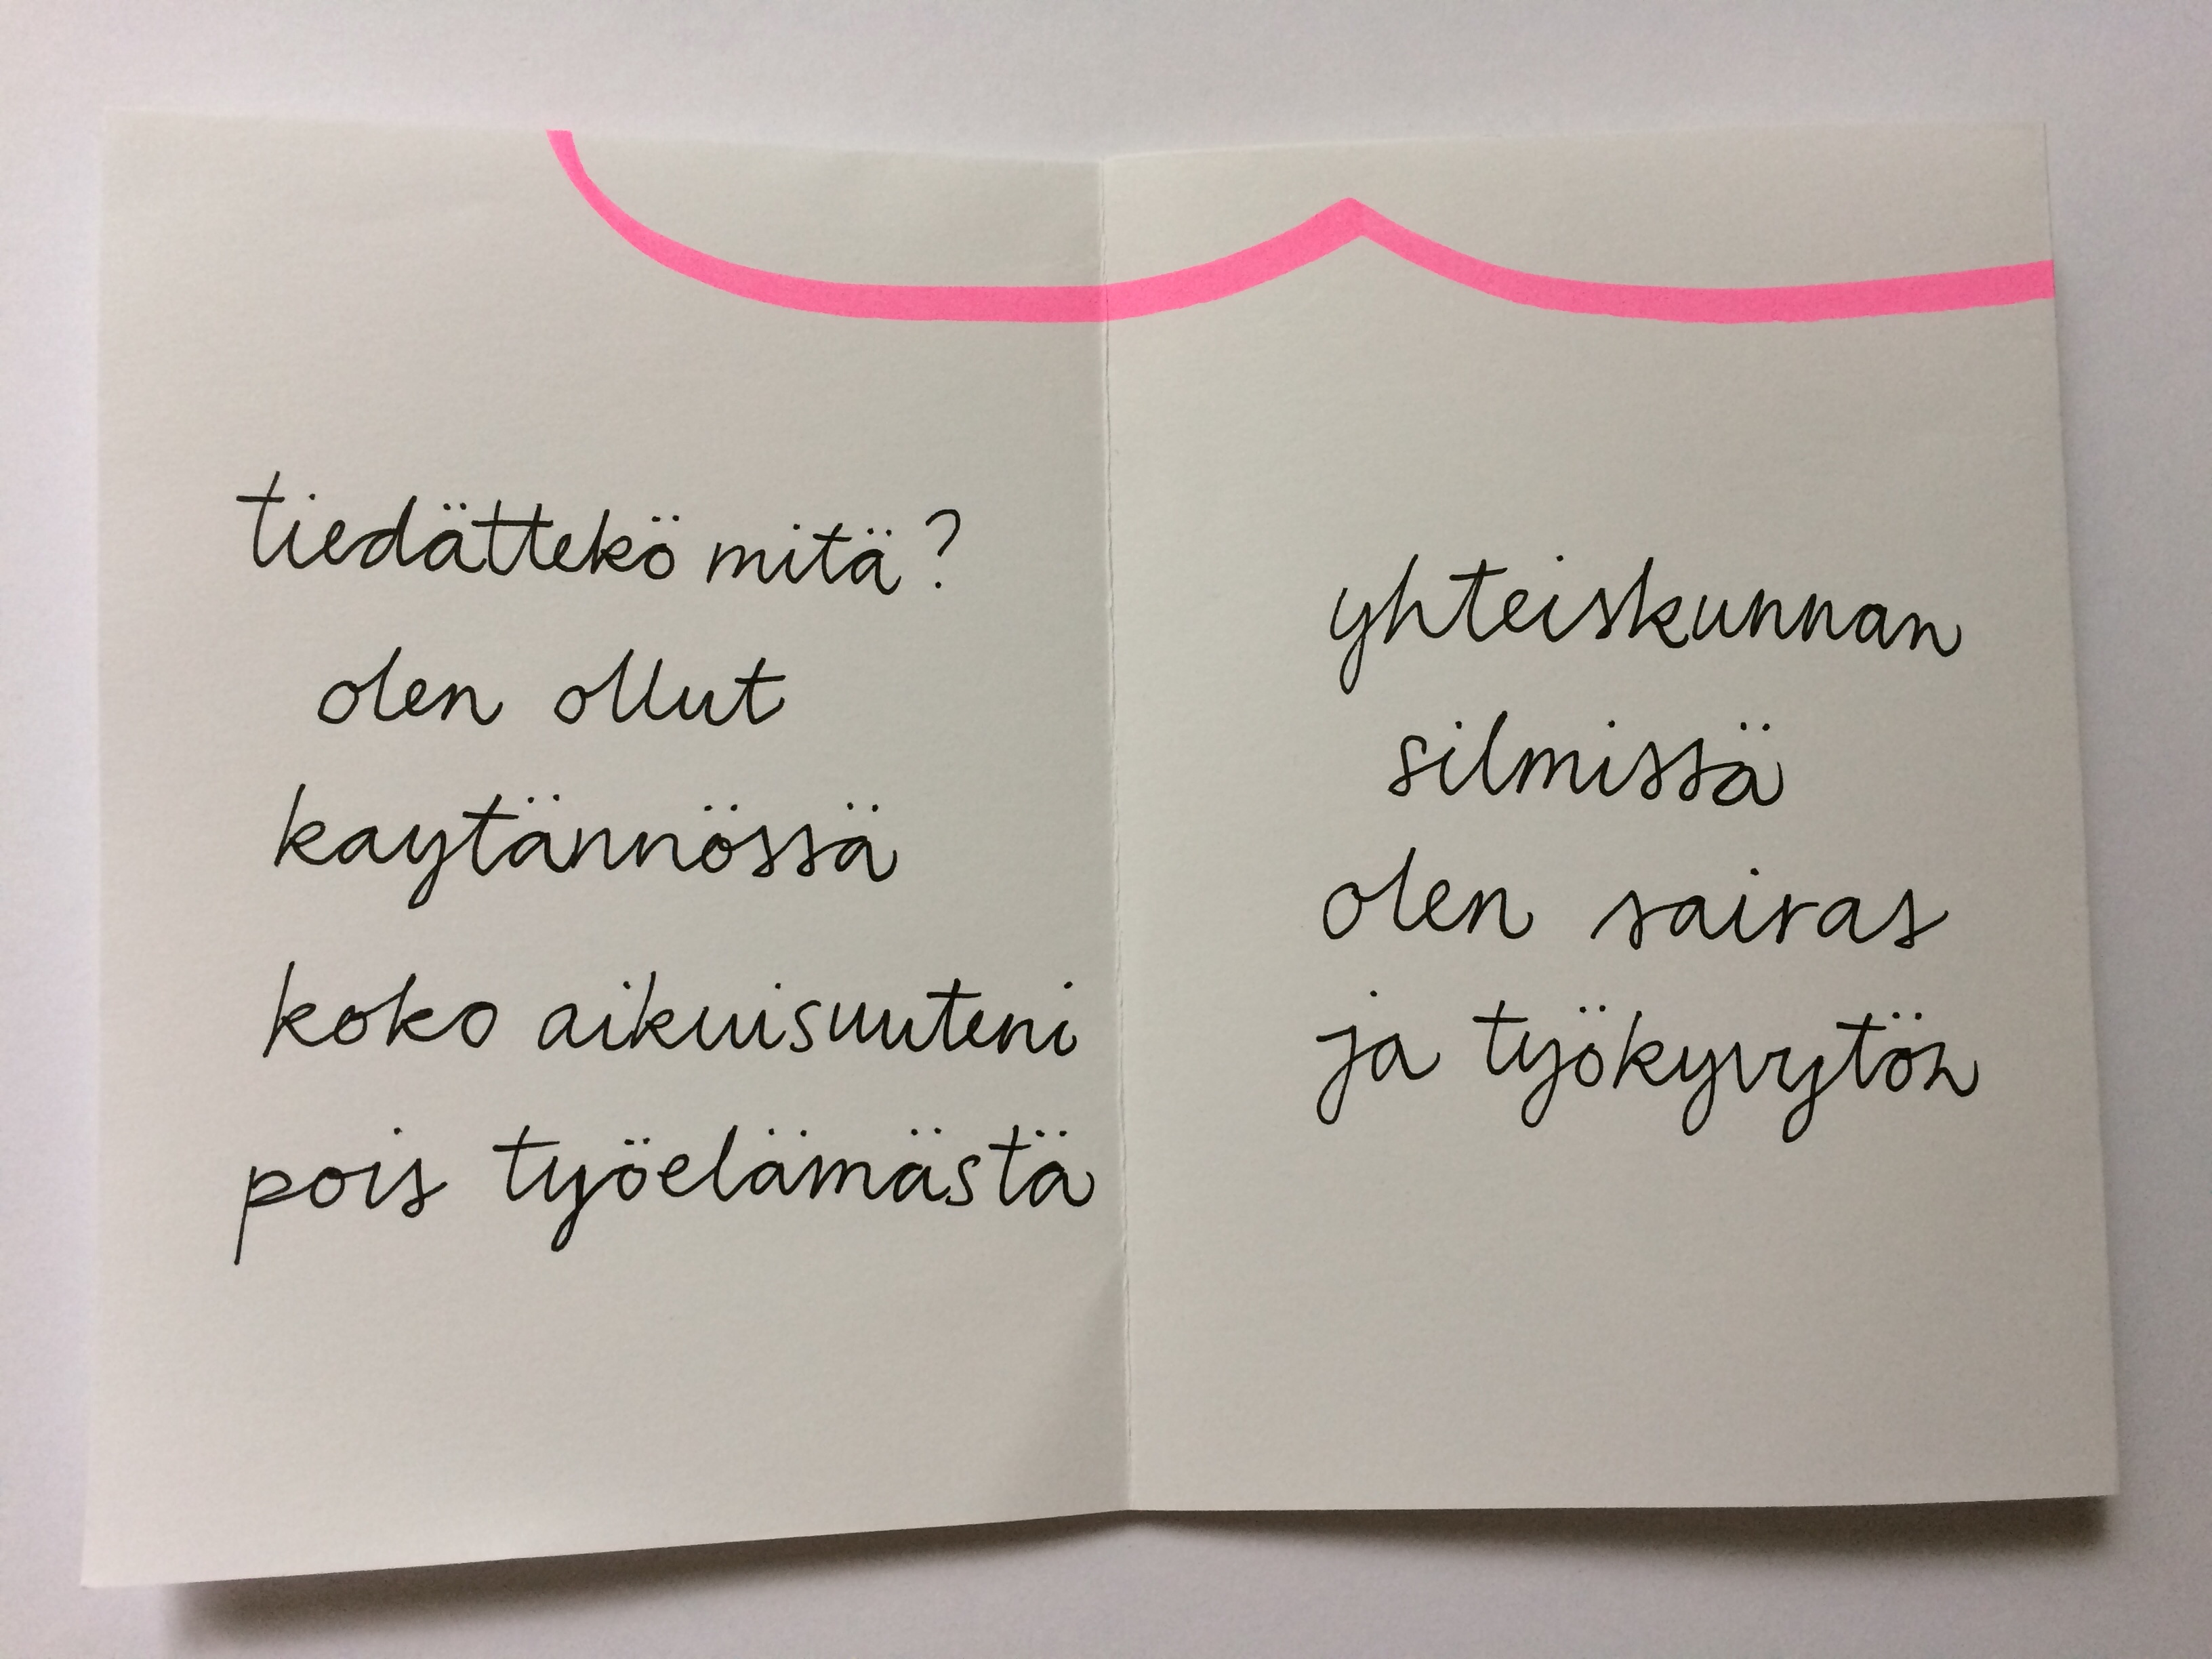 tiedättekö mitä?
olen ollut
kaytännössä
koko aikuisuuteni
pois työelämästä
yhteiskunnan
silmissä
olen sairas
ja työkyvytön